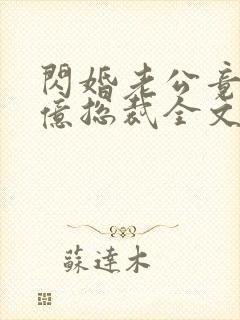 閃婚老公竟
億總裁全文
蘇達木